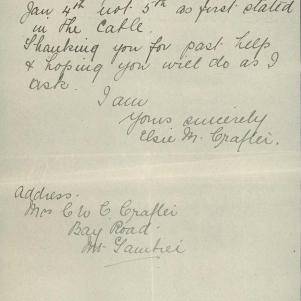 Jan 4th not 5th as first stated
in the Cable.
Thanking you for past help
& hoping you will do as I
ask.
I am
Yours sincerely
Elsie M. Crafter.
Address.
Mrs C W C. Crafter
Bay Road.
Mt Gambier